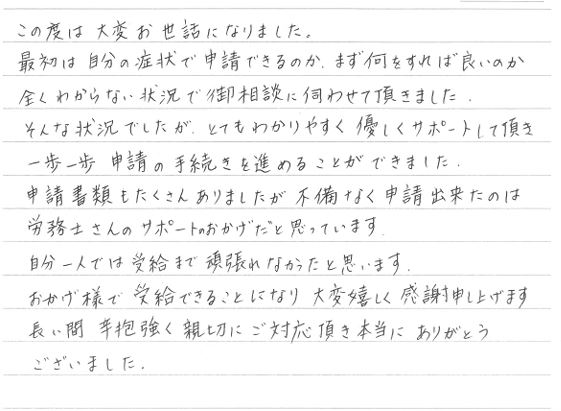 この度は大変お世話になりました。
最初は自分の症状で申請できるのか、まず何をすれば良いのか
全くわからない状況で御相談に伺わせて頂きました。
そんな状況でしたが、とてもわかりやすく優しくサポートして頂き
一歩一歩申請の手続きを進めることができました。
申請書類もたくさんありましたが不備なく申請出来たのは
労務士さんのサポートのおかげだと思っています。
自分一人では受給まで頑張れなかったと思います。
おかげ様で受給できることになり大変嬉しく感謝申し上げます
長い間辛抱強く親切にご対応頂き本当にありがとう
ございました。